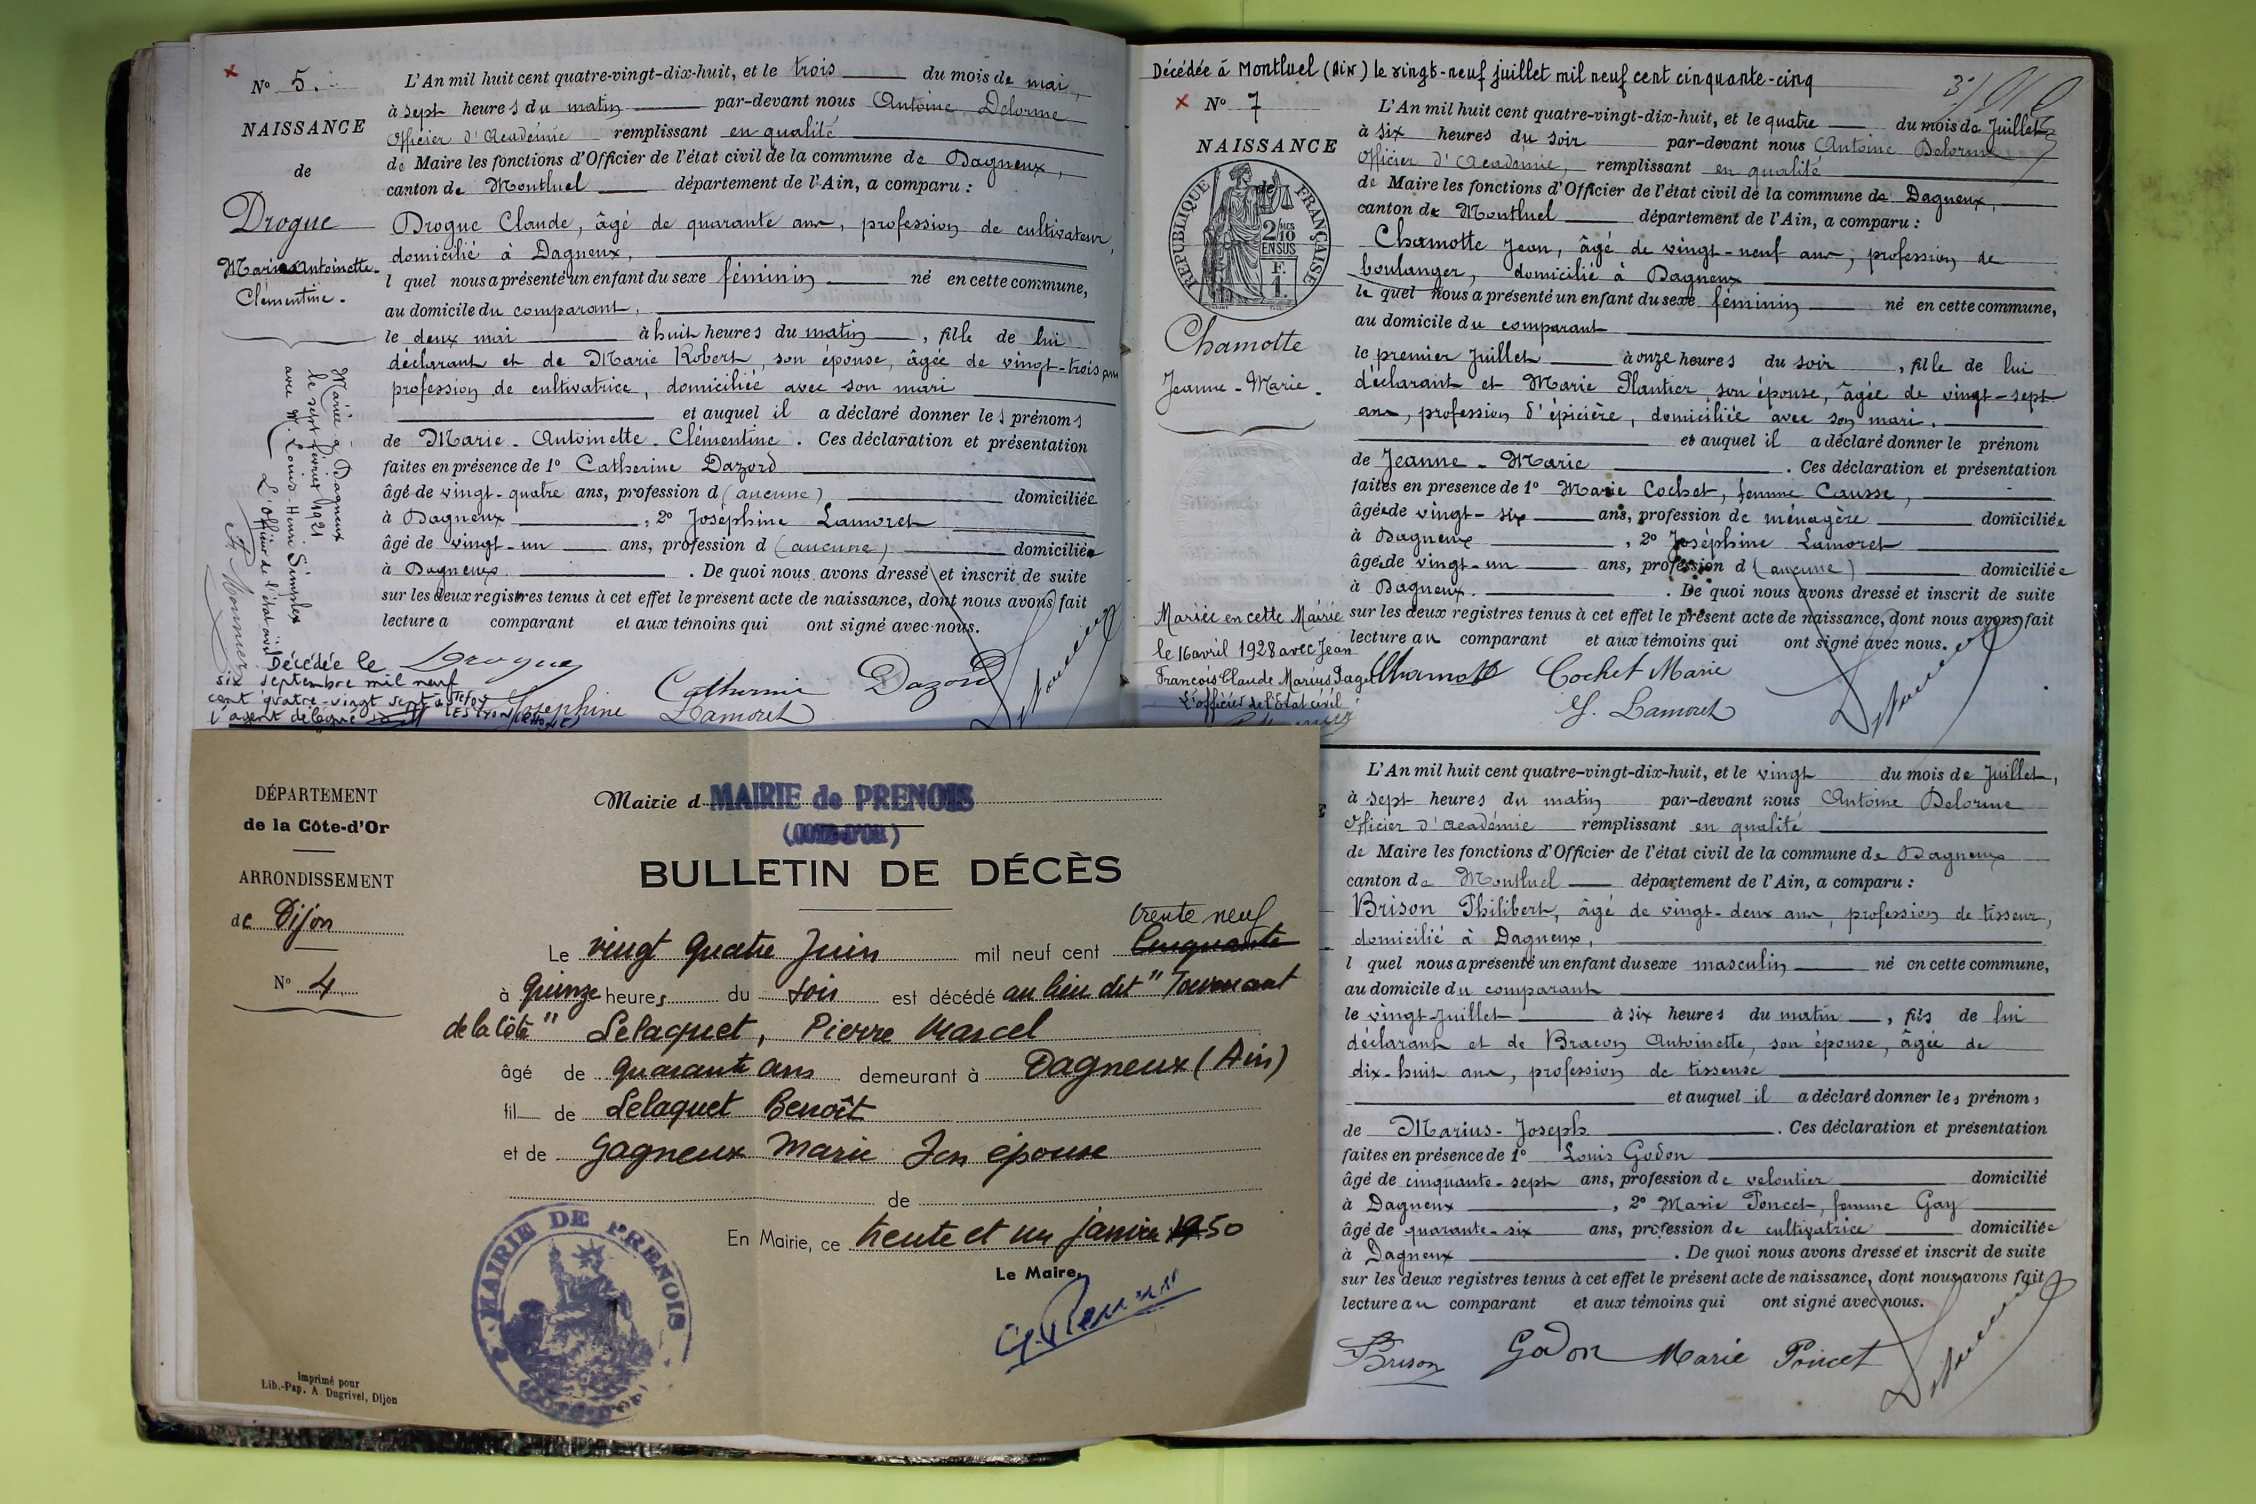 N° 5.
NAISSANCE
de
Drogue
Marie Antoinette
Clémentine.
L'An mil huit cent quatre-vingt-dix-huit, et le trois du mois de mai,
à sept heures du matin par-devant nous Antoine Delorme
Officier d'Académie remplissant en qualité
de Maire les fonctions d'Officier de l'état civil de la commune de Dagneux,
canton de Montluel département de l'Ain, a comparu :
Drogue Claude, âgé de quarante ans, profession de cultivateur,
domicilié à Dagneux,
l quel nous a présenté un enfant du sexe féminin né en cette commune,
au domicile du comparant,
le deux mai à huit heures du matin, fille de lui
déclarant et de Marie Robert, son épouse, âgée de vingt-trois ans
profession de cultivatrice, domiciliée avec son mari
et auquel il a déclaré donner les prénoms
de Marie-Antoinette-Clémentine. Ces déclaration et présentation
faites en présence de 1° Catherine Dazord
âgé de vingt-quatre ans, profession d (aucune) domiciliée
à Dagneux, 2° Joséphine Lamoret
âgé de vingt-un ans, profession d (aucune) domiciliée
à Dagneux. De quoi nous avons dressé et inscrit de suite
sur les deux registres tenus à cet effet le présent acte de naissance, dont nous avons fait
lecture a comparant et aux témoins qui ont signé avec nous.
Mariée à Dagneux
le sept février 1921
avec M. Louis-Henri Simplex
L'officier de l'état civil
Décédée le
six septembre mil neuf
cent quatre-vingt sept à
l'agent délégué
Drogue
Catherine Dazord
Josephine Lamoret
Décédée à Montluel (Ain) le vingt-neuf juillet mil neuf cent cinquante-cinq
N° 7
NAISSANCE
de
RÉPUBLIQUE FRANÇAISE
2/10
EN SUS
F.
1.
Chamotte
Jeanne-Marie.
L'An mil huit cent quatre-vingt-dix-huit, et le quatre du mois de Juillet
à six heures du soir par-devant nous Antoine Delorme
Officier d'Académie, remplissant en qualité
de Maire les fonctions d'Officier de l'état civil de la commune de Dagneux,
canton de Montluel département de l'Ain, a comparu :
Chamotte Jean, âgé de vingt-neuf ans, profession de
boulanger, domicilié à Dagneux
le quel nous a présenté un enfant du sexe féminin né en cette commune,
au domicile du comparant
le premier Juillet à onze heures du soir, fille de lui
déclarant et Marie Plantier, son épouse, âgée de vingt-sept
ans, profession d'épicière, domiciliée avec son mari.
et auquel il a déclaré donner le prénom
de Jeanne-Marie. Ces déclaration et présentation
faites en présence de 1° Marie Cochet, femme Causse,
âgée de vingt-six ans, profession de ménagère domiciliée
à Dagneux, 2° Joséphine Lamoret
âgée de vingt-un ans, profession d (aucune) domiciliée
à Dagneux. De quoi nous avons dressé et inscrit de suite
sur les deux registres tenus à cet effet le présent acte de naissance, dont nous avons fait
lecture au comparant et aux témoins qui ont signé avec nous.
Mariée en cette Mairie
le 16 avril 1928 avec Jean
François Claude Marius Page
L'officier de l'état civil
Chamotte Cochet Marie
J. Lamoret
L'An mil huit cent quatre-vingt-dix-huit, et le vingt du mois de Juillet,
à sept heures du matin par-devant nous Antoine Delorme
Officier d'académie remplissant en qualité
de Maire les fonctions d'Officier de l'état civil de la commune de Dagneux
canton de Montluel département de l'Ain, a comparu :
Brison Philibert, âgé de vingt-deux ans, profession de tisseur,
domicilié à Dagneux,
l quel nous a présenté un enfant du sexe masculin né en cette commune,
au domicile du comparant
le vingt-Juillet à six heures du matin, fils de lui
déclarant et de Bracon Antoinette, son épouse, âgée de
dix-huit ans, profession de tisseuse
et auquel il a déclaré donner les prénoms
de Marius-Joseph. Ces déclaration et présentation
faites en présence de 1° Louis Godon
âgé de cinquante-sept ans, profession de veloutier domicilié
à Dagneux, 2° Marie Poncet, femme Gay
âgé de quarante-six ans, profession de cultivatrice domiciliée
à Dagneux. De quoi nous avons dressé et inscrit de suite
sur les deux registres tenus à cet effet le présent acte de naissance, dont nous avons fait
lecture au comparant et aux témoins qui ont signé avec nous.
Brison Godon Marie Poncet
DÉPARTEMENT
de la Côte-d'Or
ARRONDISSEMENT
de Dijon
N° 4
Mairie d MAIRIE de PRENOIS
(COTE-D'OR)
BULLETIN DE DÉCÈS
trente neuf
Le vingt quatre Juin mil neuf cent Cinquante
à Quinze heures du soir est décédé au lieu dit "Tournant
de la Côte" Lelaquet, Pierre Marcel
âgé de quarante ans demeurant à Dagneux (Ain)
fil de Lelaquet Benoît
et de Gagneux Marie son épouse
de
En Mairie, ce trente et un janvier 1950
Le Maire,
MAIRIE DE PRENOIS
(COTE-D'OR)
Imprimé pour
Lib.-Pap. A. Dugrivel, Dijon